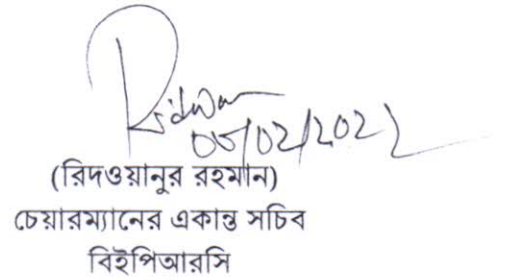 Ridwan
(রিদওয়ানুর রহমান)
চেয়ারম্যানের একান্ত সচিব
বিইপিআরসি